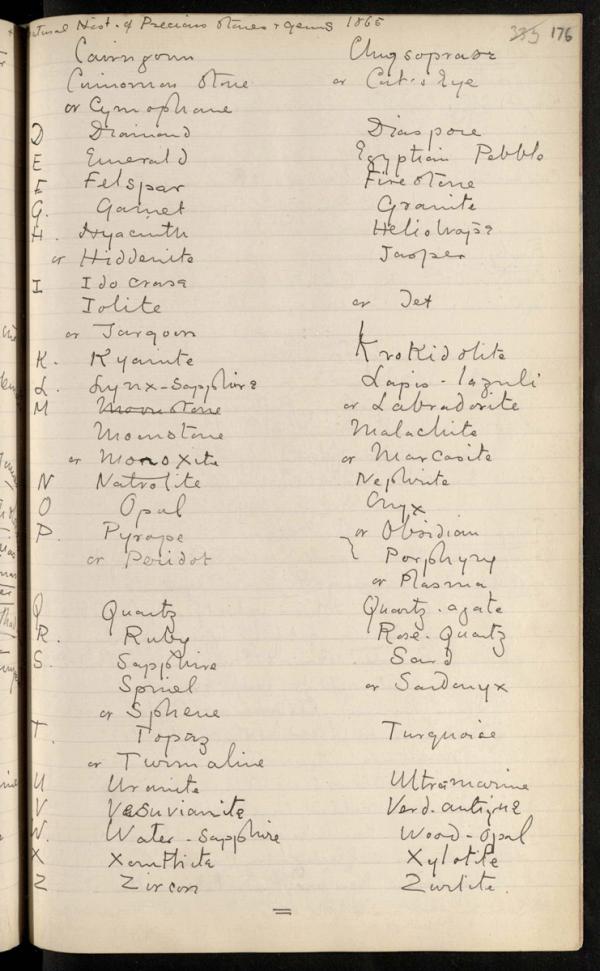 Natural Hist. of Precious Stones & Gems 1865 335 176
Cairngorm Chrysoprase
Cinnomon Stone or Cat's Eye
or Cymophane
D Diamond Diaspore
E Emerald Egyptian Pebble
F Felspar Fire stone
G. Garnet Granite
H. Hyacinth Heliotrope
or Hiddenite Jasper
I Idocrase
Iolite or Jet
or Jargoon
K. Kyanite Krokidolite
L. Lynx-Sapphire Lapis-lazuli
M Moonstone or Labradorite
Moonstone Malachite
or Monoxite or Marcasite
N Natrolite Nephrite
O Opal Onyx
P. Pyrope or Obsidian
or Peridot } Porphyry
or Plasma
Q Quartz Quartz-agate
R. Ruby Rose-Quartz
S. Sapphire Sard
Spinel or Sardonyx
or Sphene
T. Topaz Turquoise
or Turmaline
U Uranite Ultramarine
V Vesuvianite Verd-antique
W. Water-Sapphire Wood-Opal
X Xanthite Xylotile
Z Zircon Zurlite.